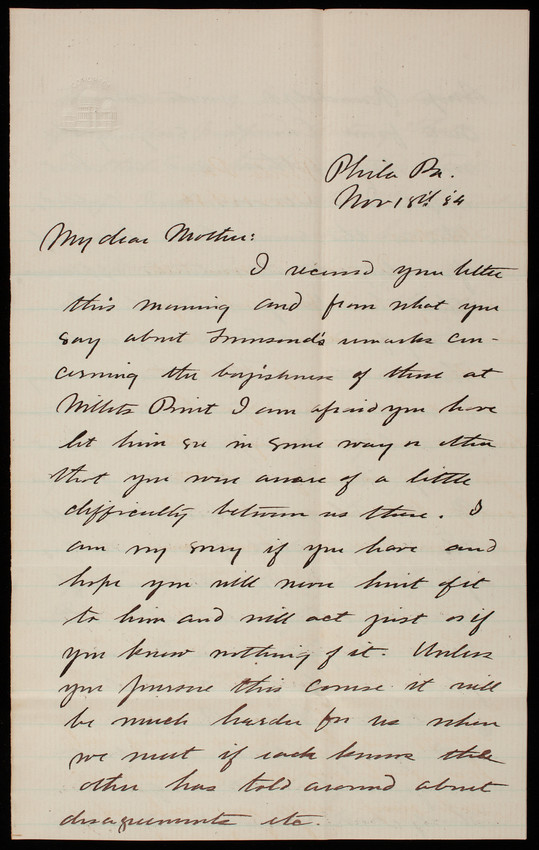 Phila Pa.
Nov 18th '84
My dear Mother:
I received your letter
this morning and from what you
say about Townsend's remarks con-
cerning the boyishness of those at
Willets Point I am afraid you have
let him see in some way or other
that you were aware of a little
difficulty between us there. I
am very sorry if you have and
hope you will never hint of it
to him and will act just as if
you knew nothing of it. Unless
you pursue this course it will
be much harder for us when
we meet if each knows the
other has told around about
disagreements etc.